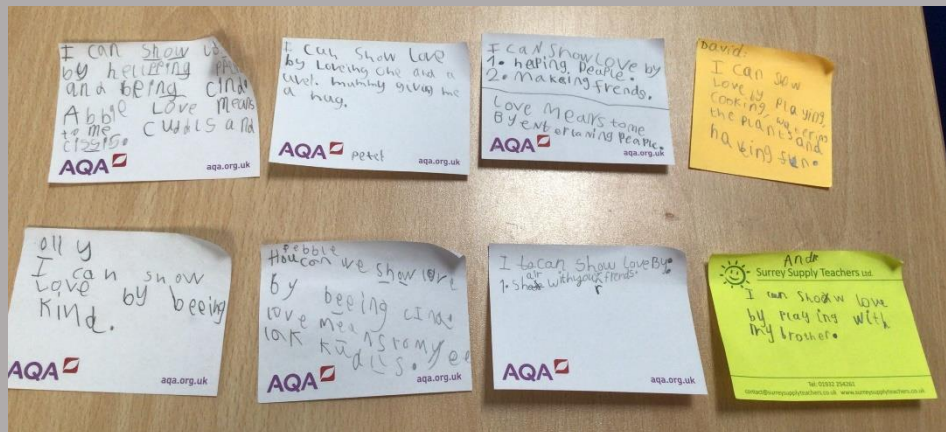 I can show
by hellping
and being cind.
Abbie Love means
to me cuddls and
cizzis.
AQA
aqa.org.uk
I can show love
by loveing one and a
uvet. mummy giving me
a hug.
AQA
Petel
aqa.org.uk
I can show Love by
1. heping people.
2. making frends.
Love means to me
By entorlaning people.
AQA
aqa.org.uk
David:
I can sow
Love by playing,
cooking, watering
the plants and
having fun.
olly
I can show
Love by beeing
kind.
AQA
aqa.org.uk
Pebble
How can we show love
by beeing cind.
love means to my
kuddls.
AQA
aqa.org.uk
I to can show Love By.
1. Shair with your frends.
AQA
aqa.org.uk
And
Surrey Supply Teachers Ltd.
I can show love
by playing with
my brother.
Tel: 01932 254261
contact@surreysupplyteachers.co.uk www.surreysupplyteachers.co.uk